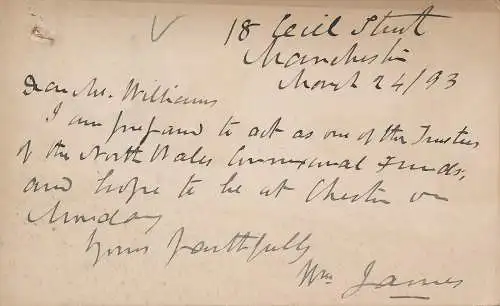 18 Cecil Street
Manchester
March 24/93
Dear Mr. Williams
I am prepared to act as one of the Trustees
of the North Wales Connexional Funds,
and hope to be at Chester on
Monday
Yours faithfully
Wm James